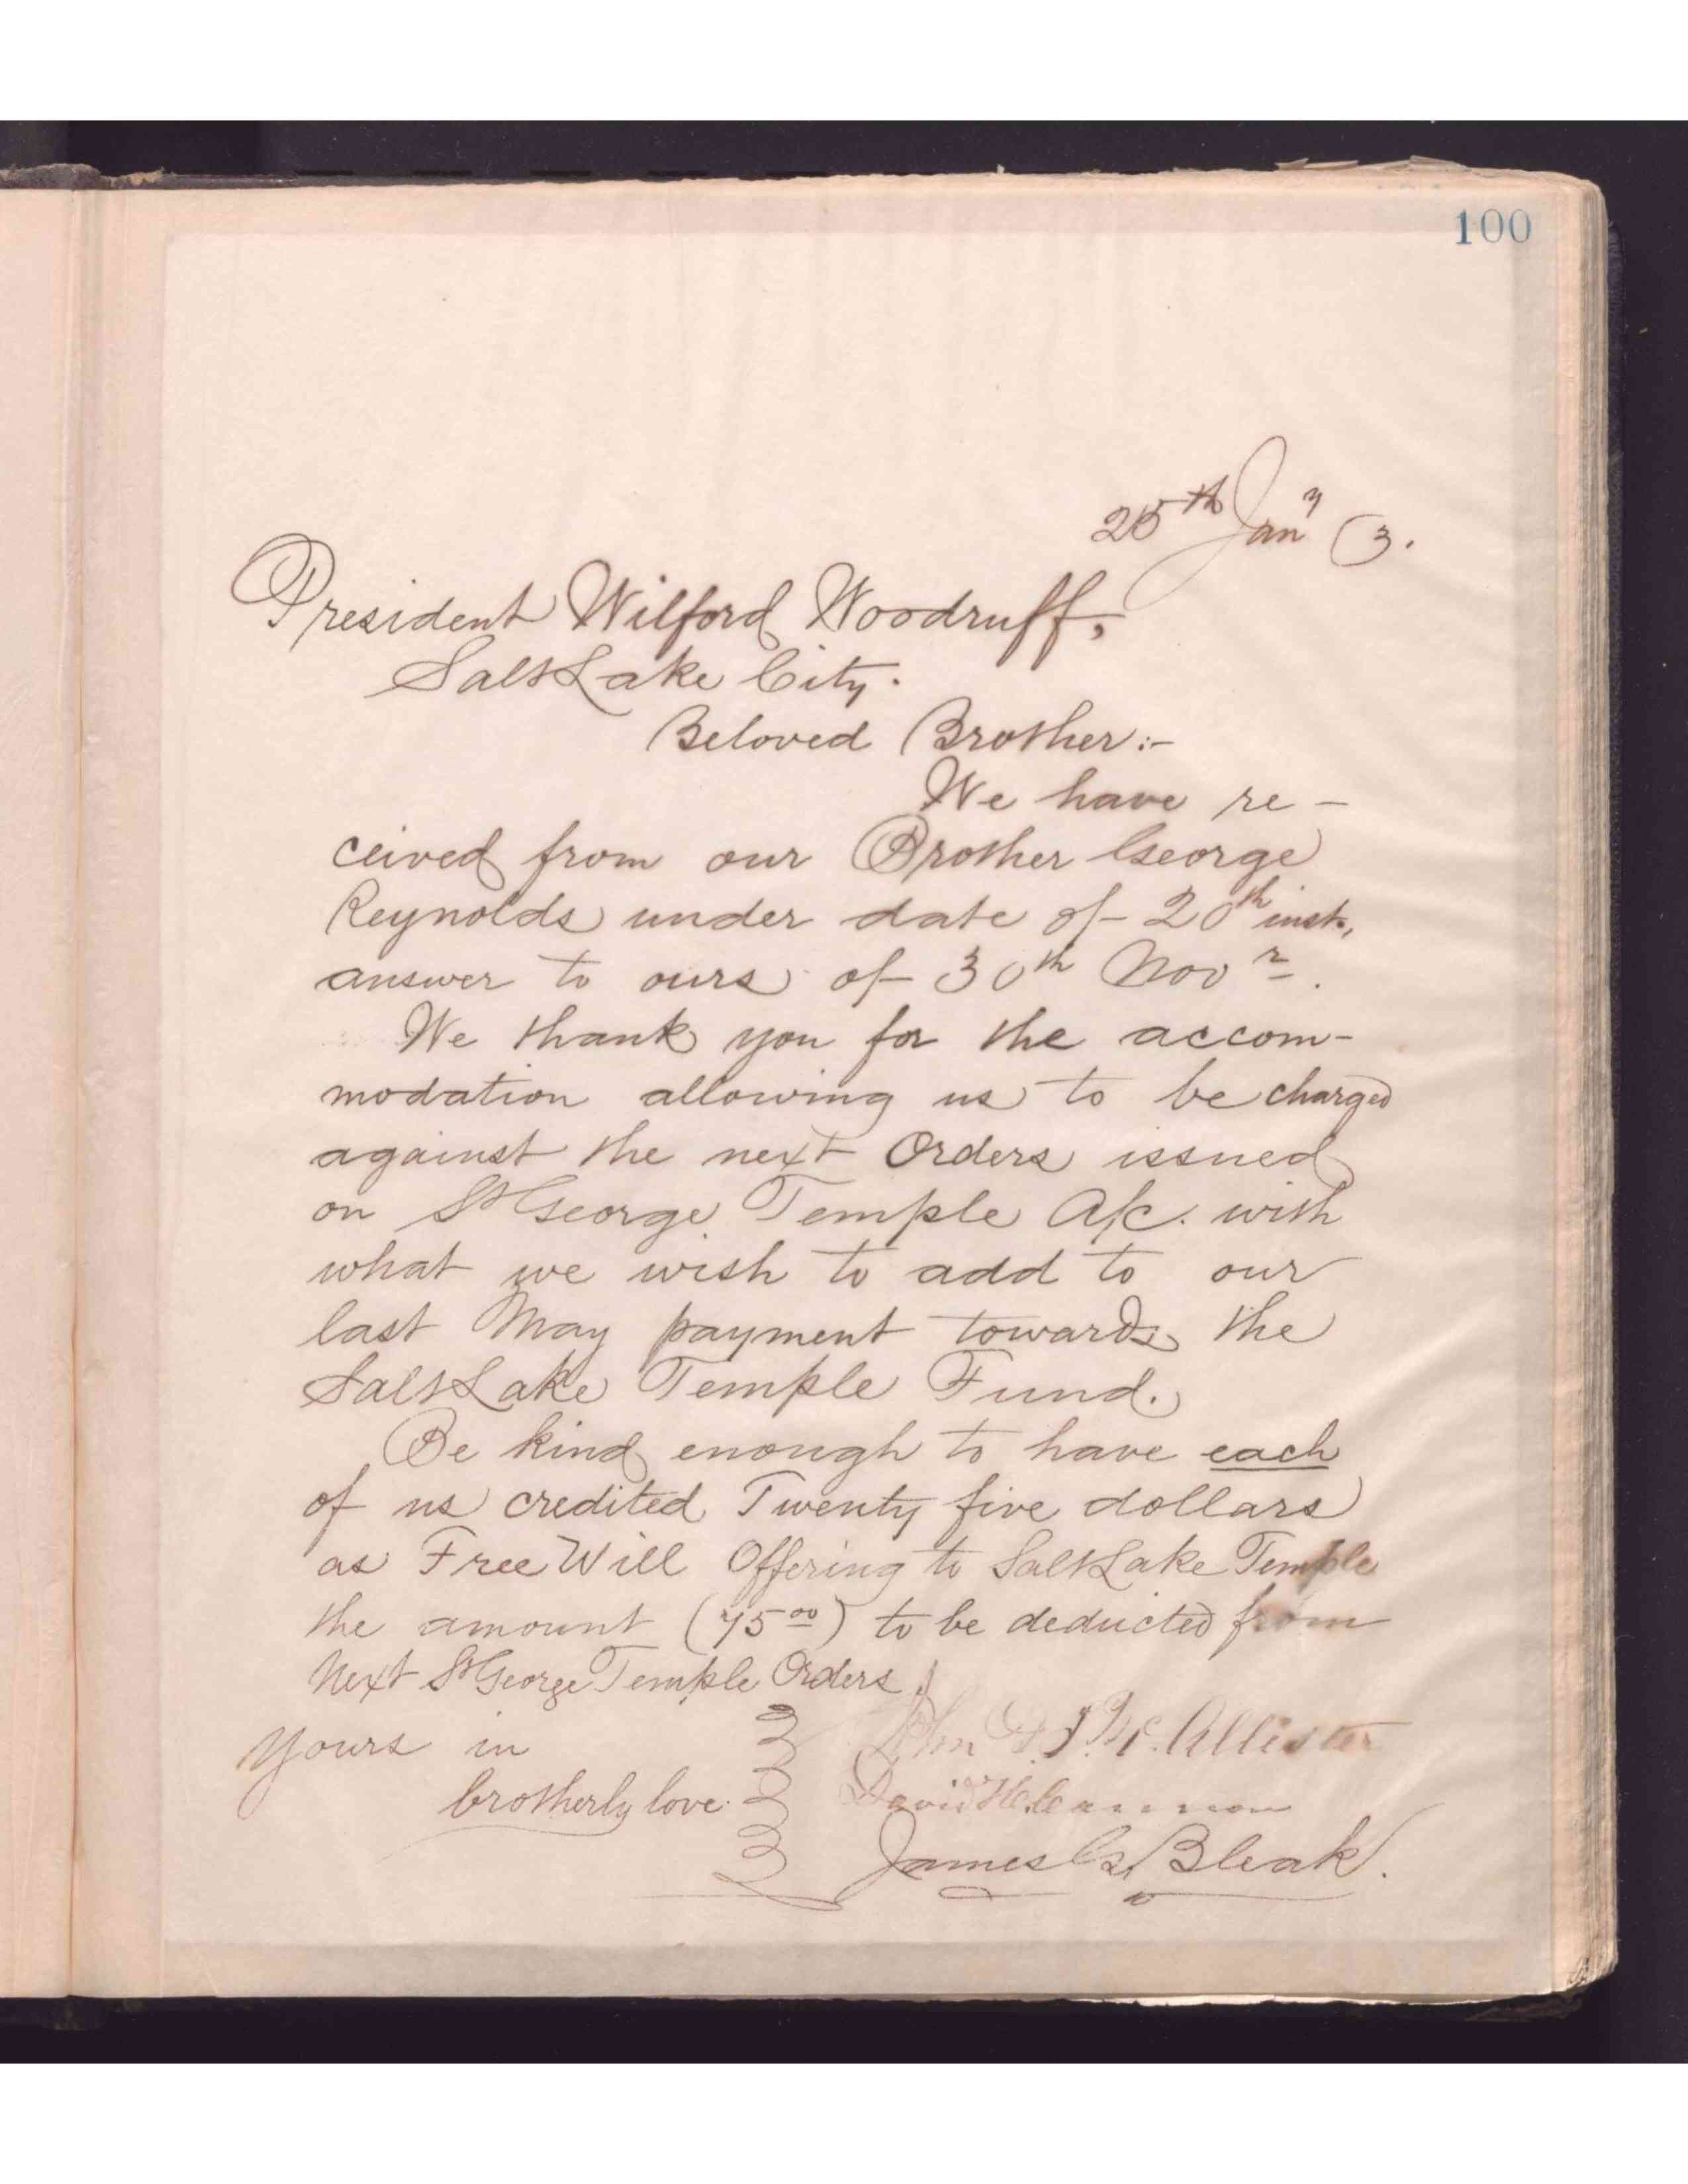 100
25th Jany (3.
President Wilford Woodruff,
Salt Lake City.
Beloved Brother:-
We have re-
ceived from our Brother George
Reynolds under date of 20th inst.,
answer to ours of 30th Novr.
We thank you for the accom-
modation allowing us to be charged
against the next Orders issued
on St George Temple A/c. with
what we wish to add to our
last May payment towards the
Salt Lake Temple Fund.
Be kind enough to have each
of us credited Twenty five dollars
as Free Will Offering to Salt Lake Temple
the amount (75 00) to be deducted from
Next St George Temple Orders.
Yours in
brotherly love.
John D. T. McAllister
David H. Cannon
James G. Bleak.